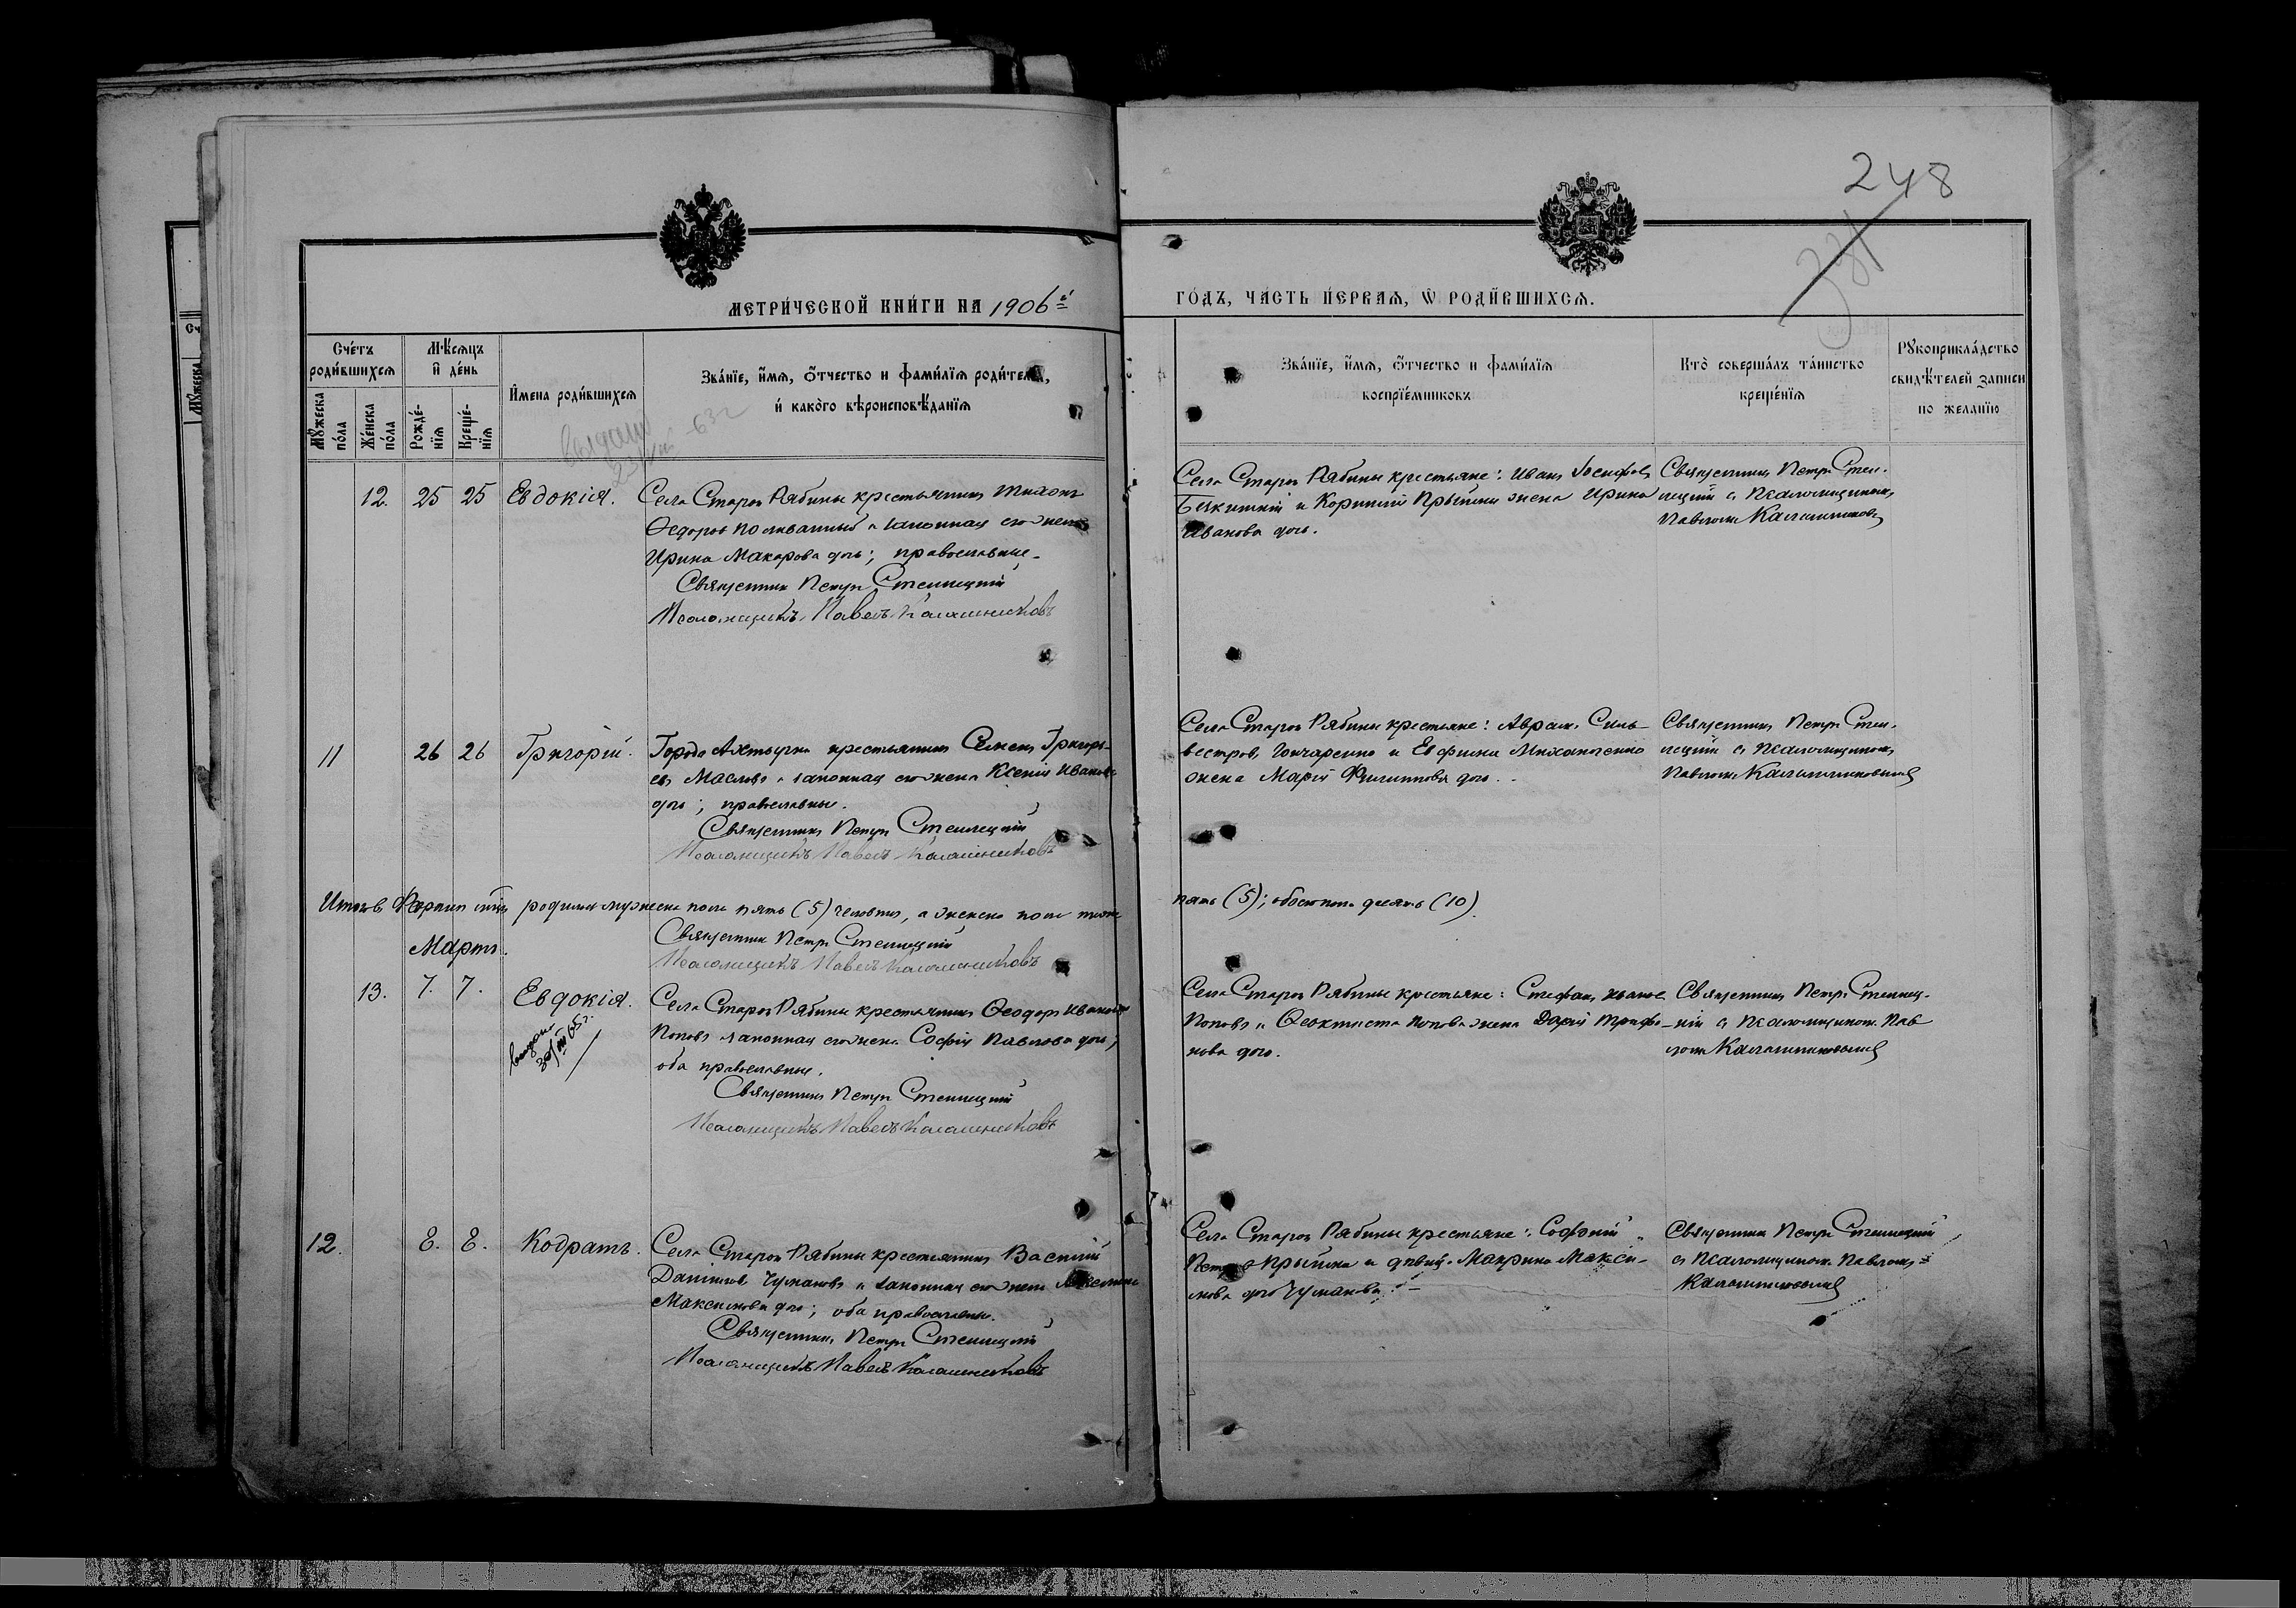 248
381
МЕТРИ́ЧЕСКОЙ КНИ́ГИ НА 1906й
ГО́ДЪ, ЧА́СТЬ ПЕ́РВАЯ, Ѡ РОДИ́ВШИХСЯ.
Сче́тъ роди́вшихся
Му́жеска по́ла
Же́нска по́ла
Мѣ́сяцъ и де́нь
Рожде́нїя
Креще́нїя
И́мена роди́вшихся
Зва́нїе, и́мя, о́тчество и фами́лїя роди́телей,
и како́го вѣроисповѣ́данїя
Зва́нїе, и́мя, о́тчество и фами́лїя
воспрїе́мниковъ
Кто̀ соверша́лъ та́инство
креще́нїя
Рукоприкла́дство
свидѣ́телей записи
по желанїю
12. 25 25 Евдокія.
Села Старой Рябины крестьянинъ Тихонъ
Ѳедоровъ Поливанный и законная его жена
Ирина Макарова дочь; православные.
Священникъ Петръ Стеллецкій
Псаломщикъ Павелъ Калашниковъ
Села Старой Рябины крестьяне: Иванъ Іосифовъ
и Корнилія Прыймы жена Ирина
Иванова дочь.
Священникъ Петръ Стел-
лецкій съ псаломщикомъ
Павломъ Калашниковымъ
11 26 26 Григорій.
Города Ахтырки крестьянинъ Семенъ Григорь-
евъ Масливъ и законная его жена Ксенія Иванова
дочь; православные.
Священникъ Петръ Стеллецкій
Псаломщикъ Павелъ Калашниковъ
Села Старой Рябины крестьяне: Аврамъ Силь-
вестровъ Гончаренко и Евфимія Михайленко
жена Марія Филиппова дочь.
Священникъ Петръ Стел-
лецкій съ псаломщикомъ
Павломъ Калашниковымъ
Итого въ родилось мужеска пола пять (5) человѣкъ, а женска пола тоже
пять (5); обоего пола десять (10).
Священникъ Петръ Стеллецкій
Псаломщикъ Павелъ Калашниковъ
Мартъ.
13. 7. 7. Евдокія.
Села Старой Рябины крестьянинъ Ѳеодоръ Ивановъ
Поповъ и законная его жена Софія Павлова дочь;
оба православные.
Священникъ Петръ Стеллецкій
Псаломщикъ Павелъ Калашниковъ
Села Старой Рябины крестьяне: Стефанъ Ивановъ
Поповъ и Ѳеоктиста Попова жена Дарія Трофи-
мова дочь.
Священникъ Петръ Стеллец-
кій съ псаломщикомъ Пав-
ломъ Калашниковымъ
12. 8. 8. Кодратъ.
Села Старой Рябины крестьянинъ Василій
Даніиловъ Чумаковъ и законная его жена
Максимова дочь; оба православные.
Священникъ Петръ Стеллецкій
Псаломщикъ Павелъ Калашниковъ
Села Старой Рябины крестьяне: Софоній
Петровъ Прыйма и дѣвица Макрина Макси-
мова дочь Чумакова.
Священникъ Петръ Стеллецкій
съ псаломщикомъ Павломъ
Калашниковымъ